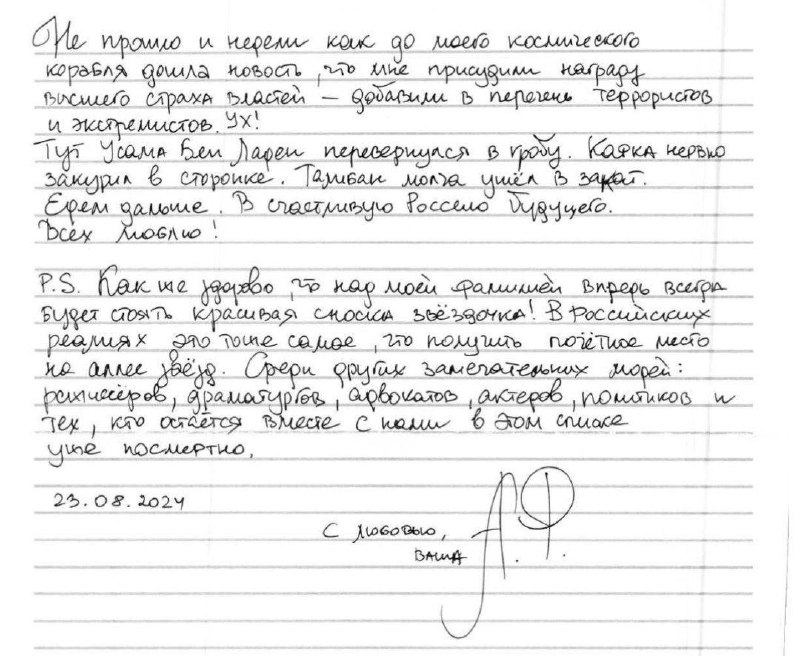 Не прошло и недели как до моего космического
корабля дошла новость, что мне присудили награду
высшего страха властей – добавили в перечень террористов
и экстремистов. Ух!
Тут Усама Бен Ладен перевернулся в гробу. Кафка нервно
закурил в сторонке. Талибан молча ушёл в закат.
Едем дальше. В счастливую Россею будущего.
Всех люблю!
P.S. Как же здорово, что над моей фамилией впредь всегда
будет стоять красивая сноска звёздочка! В Российских
реалиях это тоже самое, что получить почётное место
на аллее звёзд. Среди других замечательных людей:
режиссёров, драматургов, адвокатов, актеров, политиков и
тех, кто остаётся вместе с нами в этом списке
уже посмертно.
23.08.2024
С любовью,
ваша А.Ф.